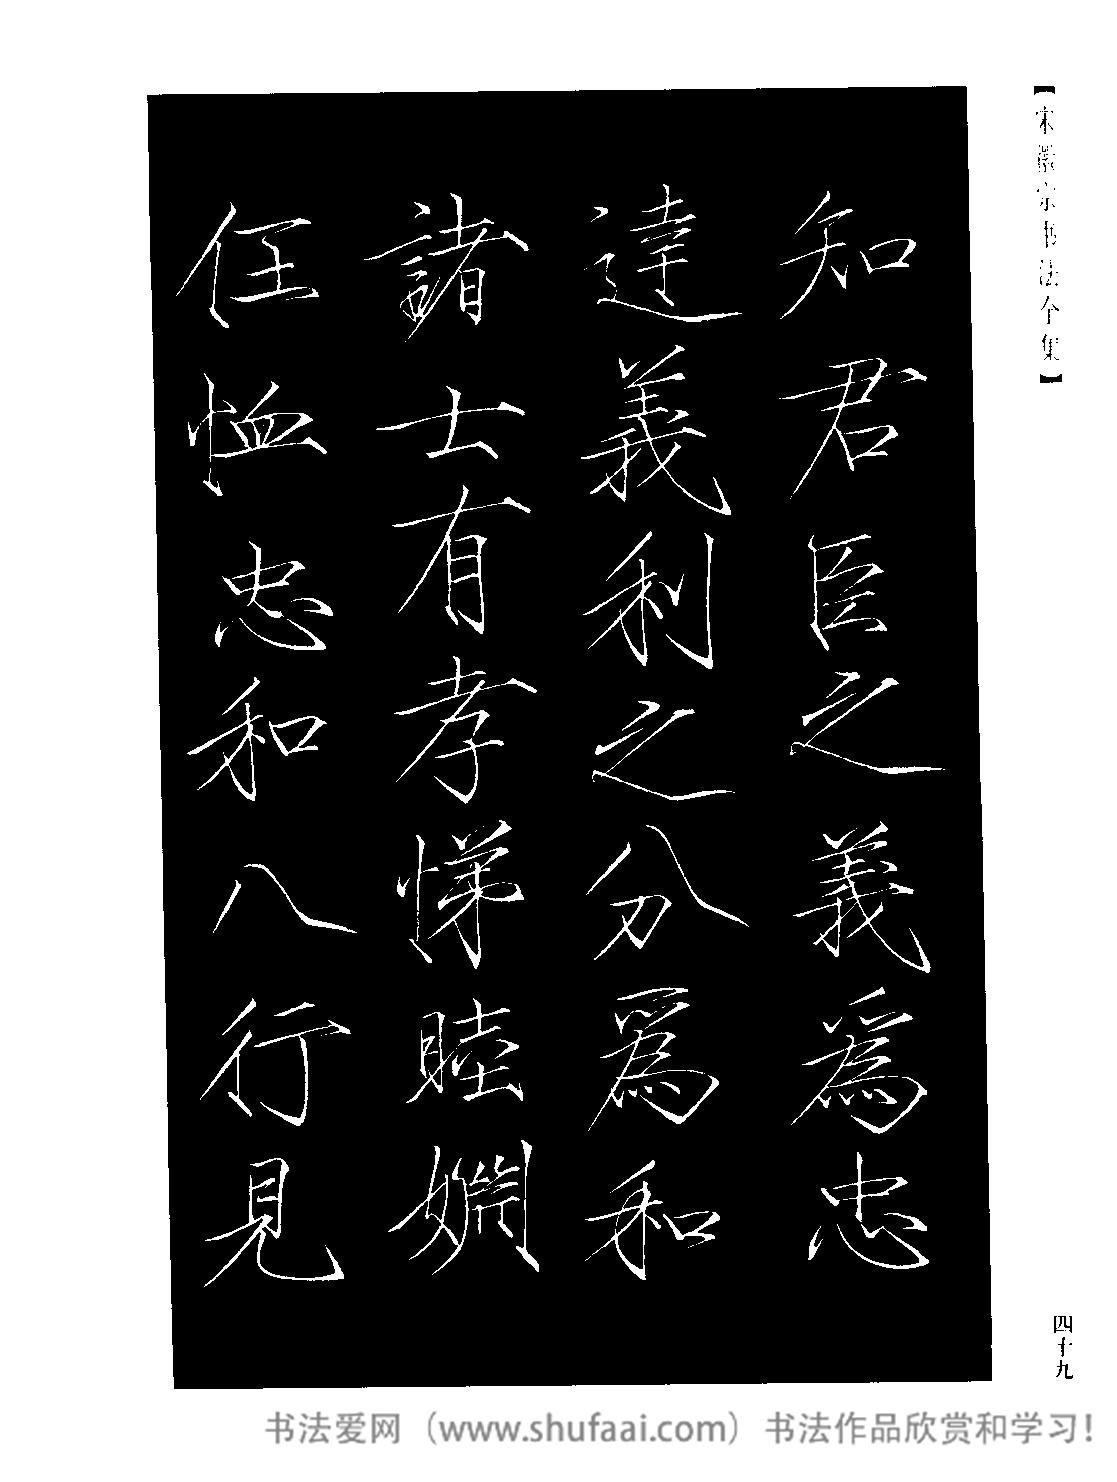 【宋徽宗书法全集】
知君臣之義爲忠
達義利之分爲和
諸士有孝悌睦嫻
任恤忠和八行見
四十九
书法爱网（www.shufaai.com）书法作品欣赏和学习！